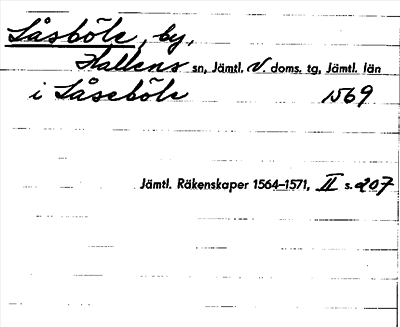 Låsböle, by,
Hallens sn, Jämtl. V. doms. tg, Jämtl. län
i Låseböle 1569
Jämtl. Räkenskaper 1564–1571, II s. 207